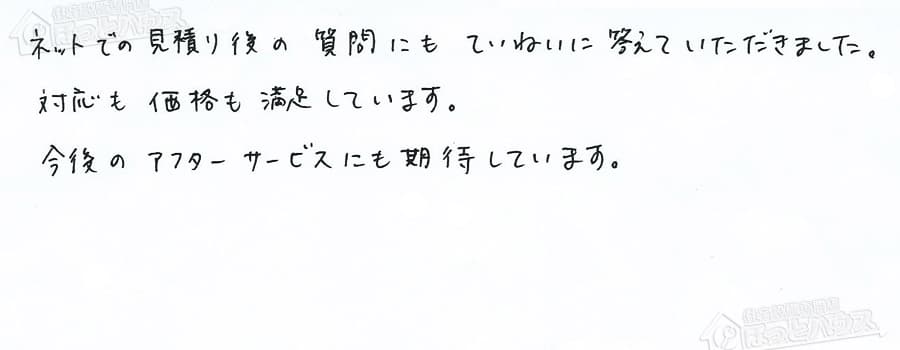 ネットでの見積り後の質問にもていねいに答えていただきました。
対応も価格も満足しています。
今後のアフターサービスにも期待しています。
ほっとハウス